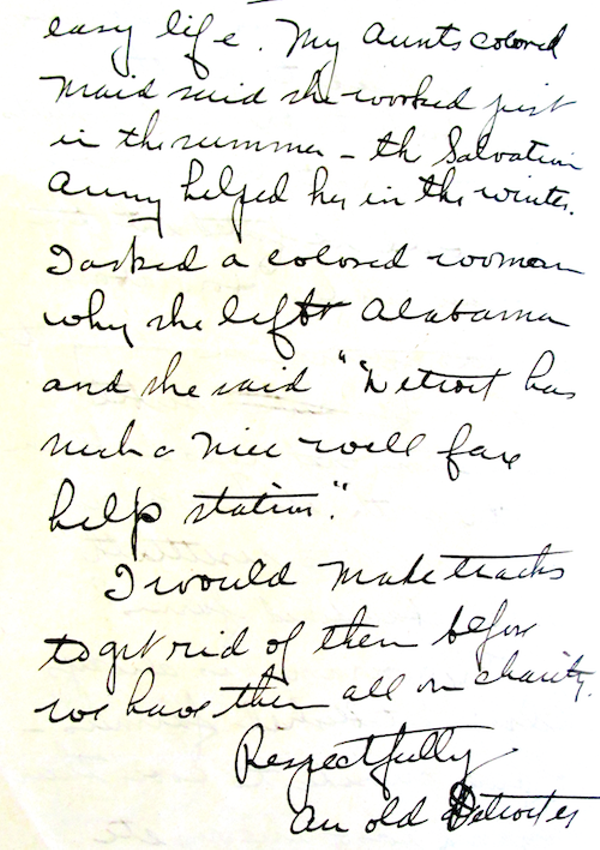 easy life. My Aunts colored
Maid said she worked just
in the summer - th Salvation
Army helped her in the winter.
I asked a colored woman
why she left Alabama
and she said "Detroit has
such a nice well fare
help station".
I would make tracks
to get rid of them before
we have them all on charity.
Respectfully
An old Detroiter